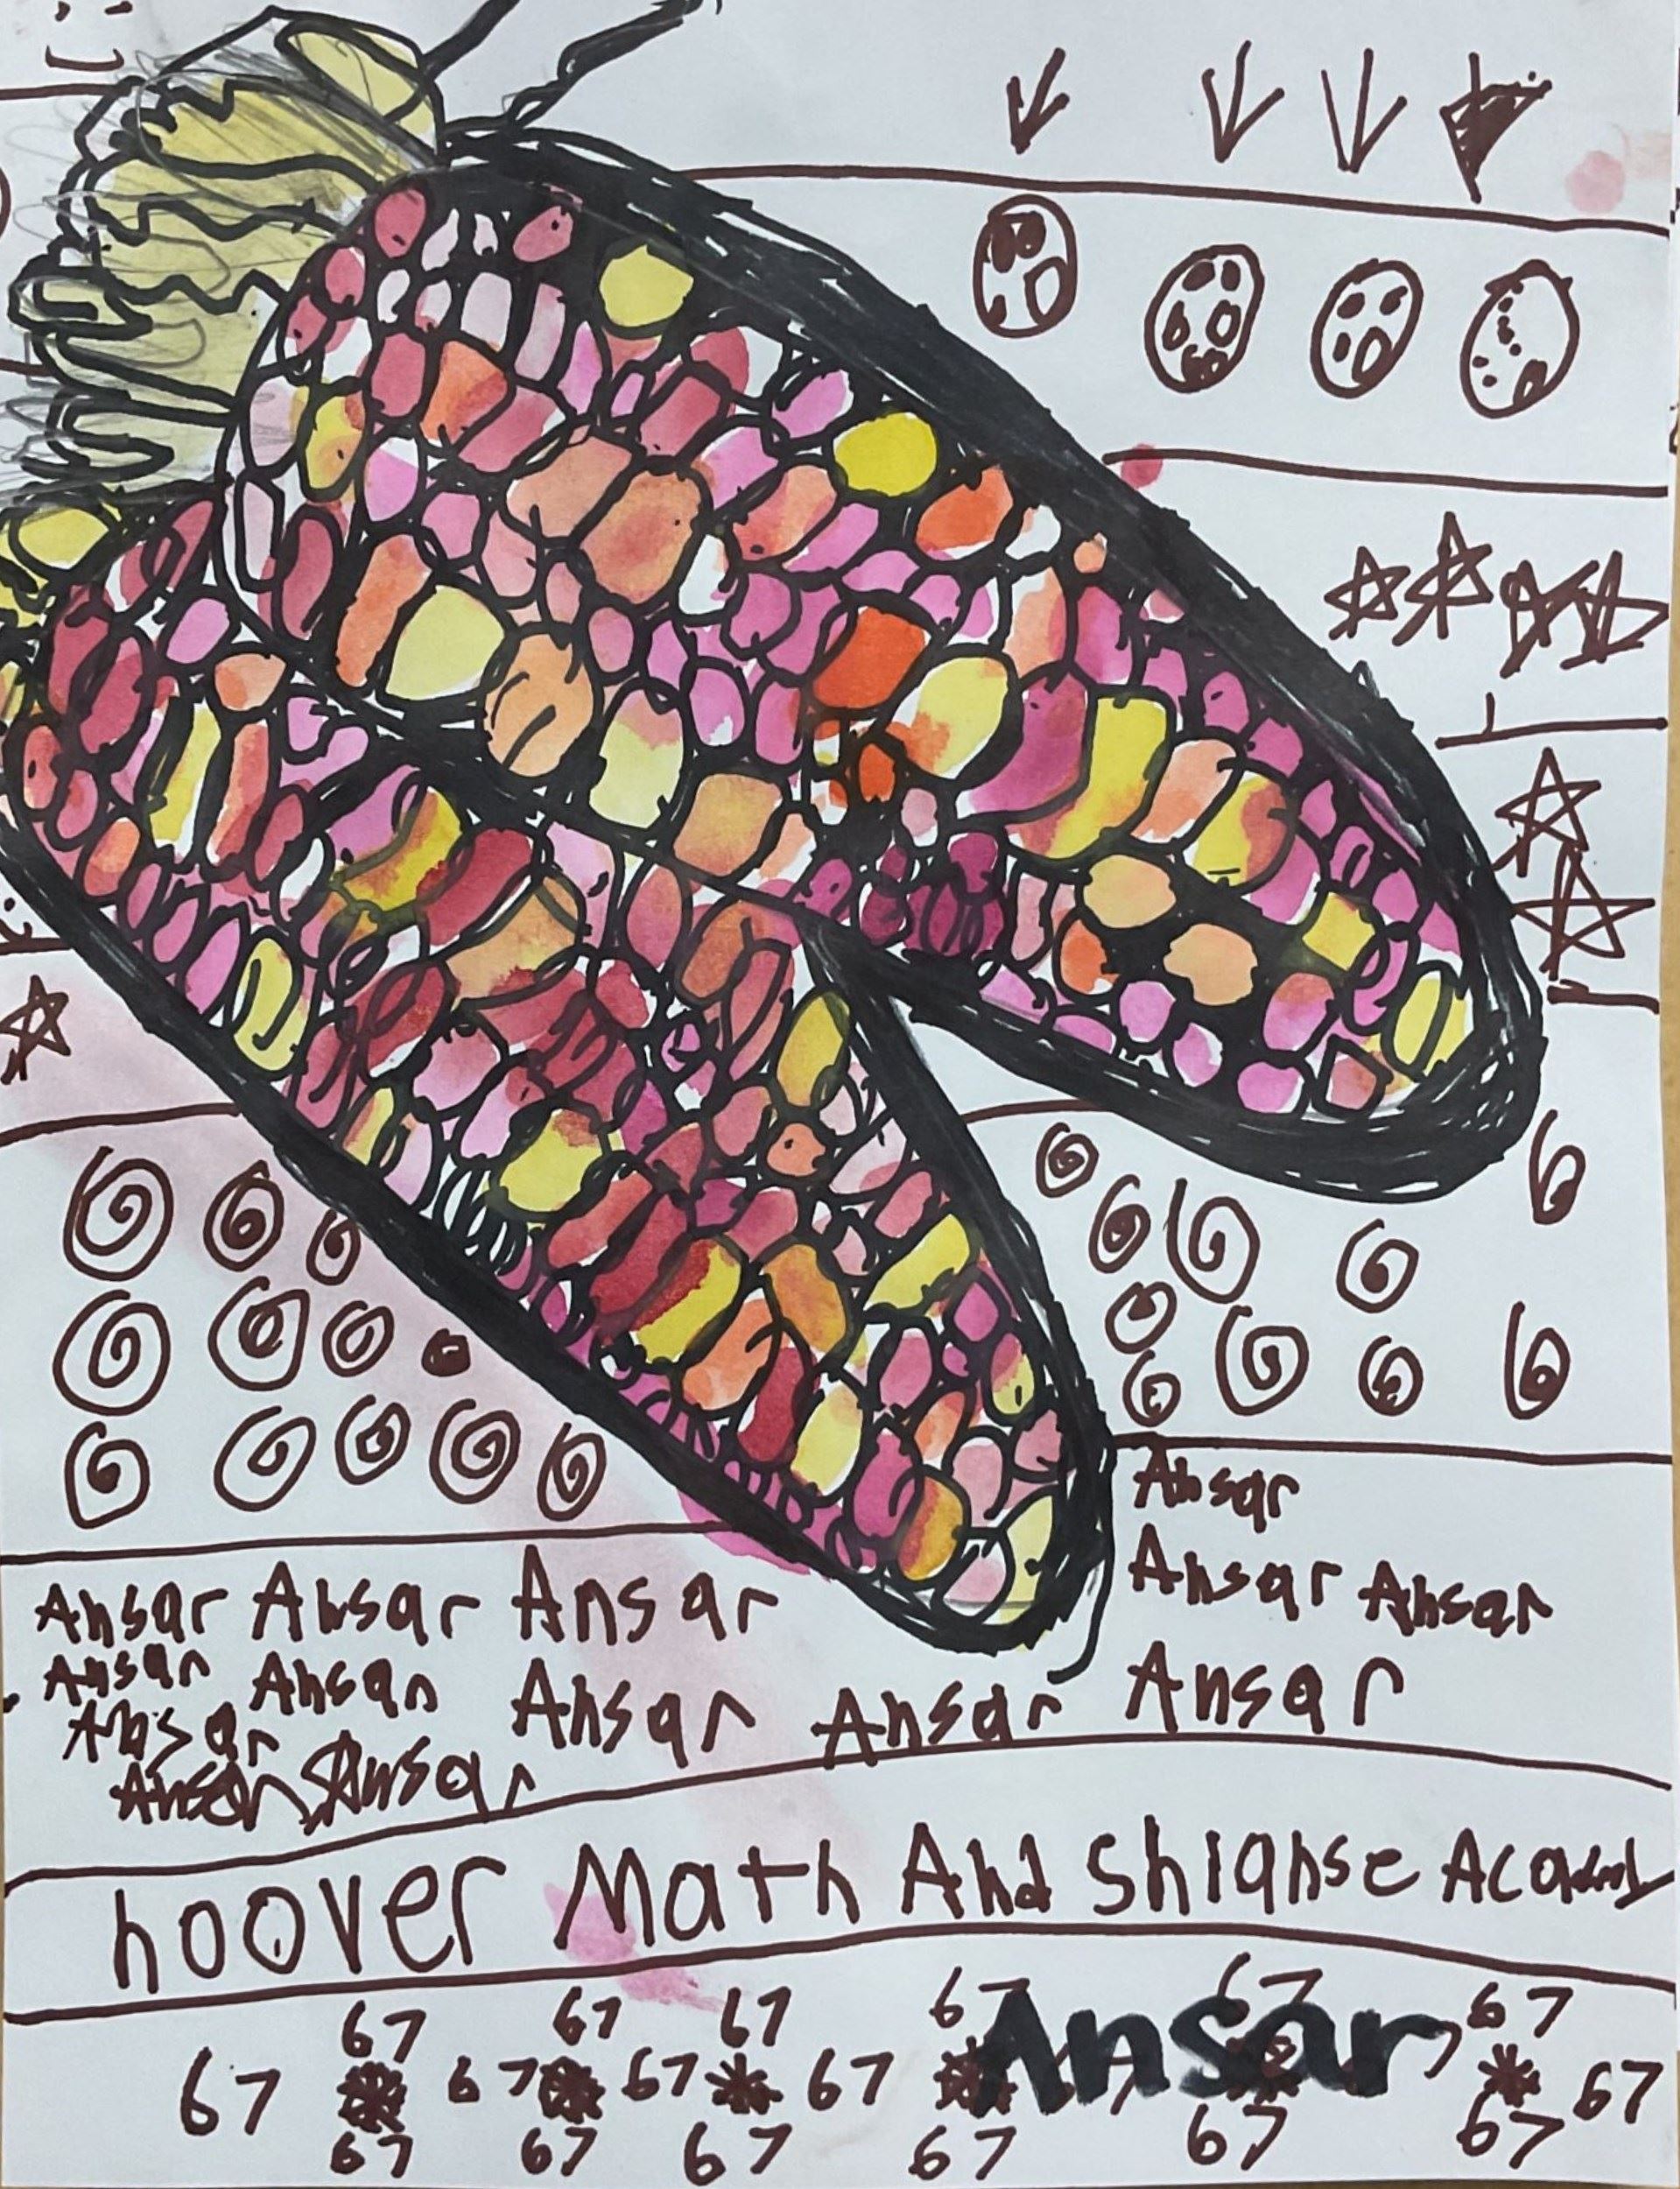 Ansar
Ansar Ansar
Ansar Ansar Ansar
Ansar Ansar Ansar Ansar Ansar
Ansar
Ansar Ansar
hoover Math And Shianse Academy
67 67 67 67 67 67
67 67 67 67 67
67 67 67 67 67 67
Ansar